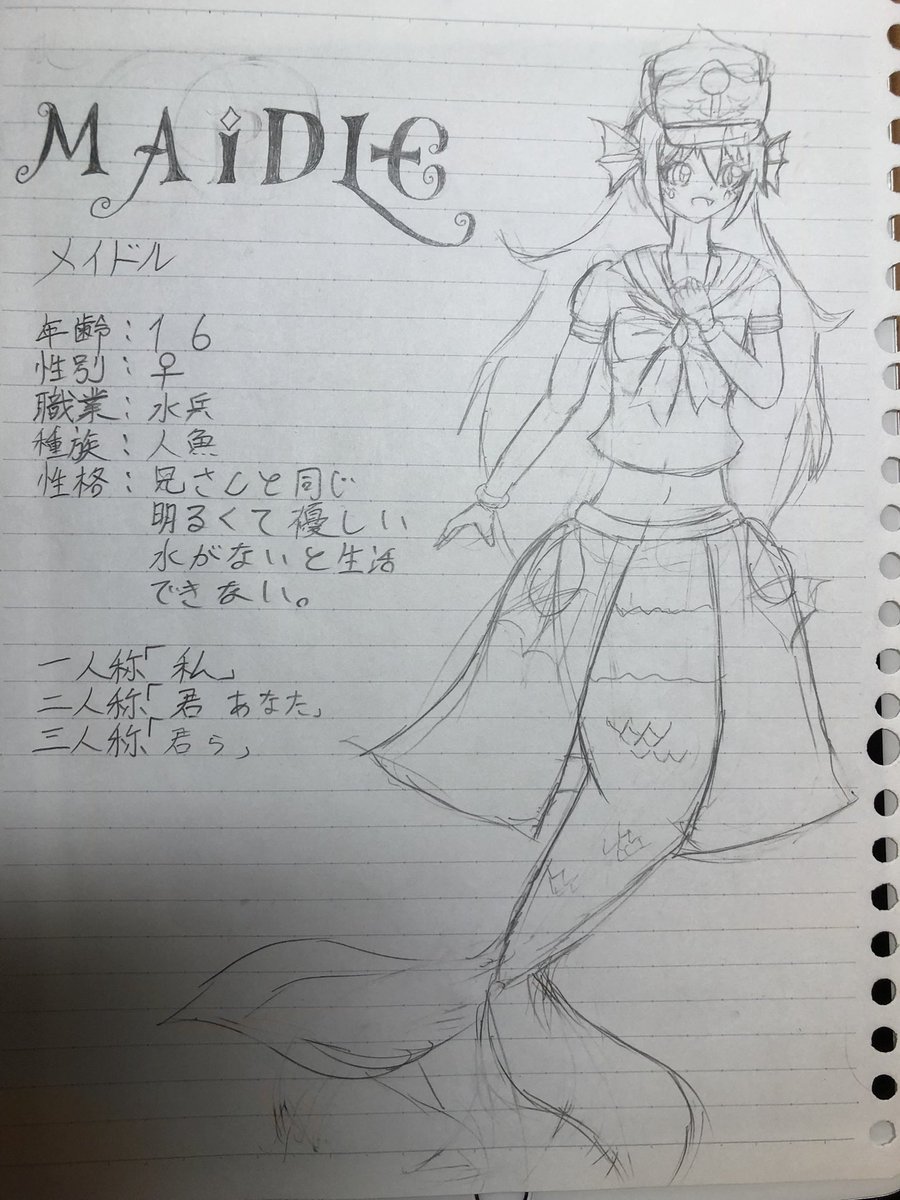 MAiDLE
メイドル
年齢：16
性別：♀
職業：水兵
種族：人魚
性格：兄さんと同じ
明るくて優しい
水がないと生活
できない。
一人称「私」
二人称「君 あなた」
三人称「君ら」